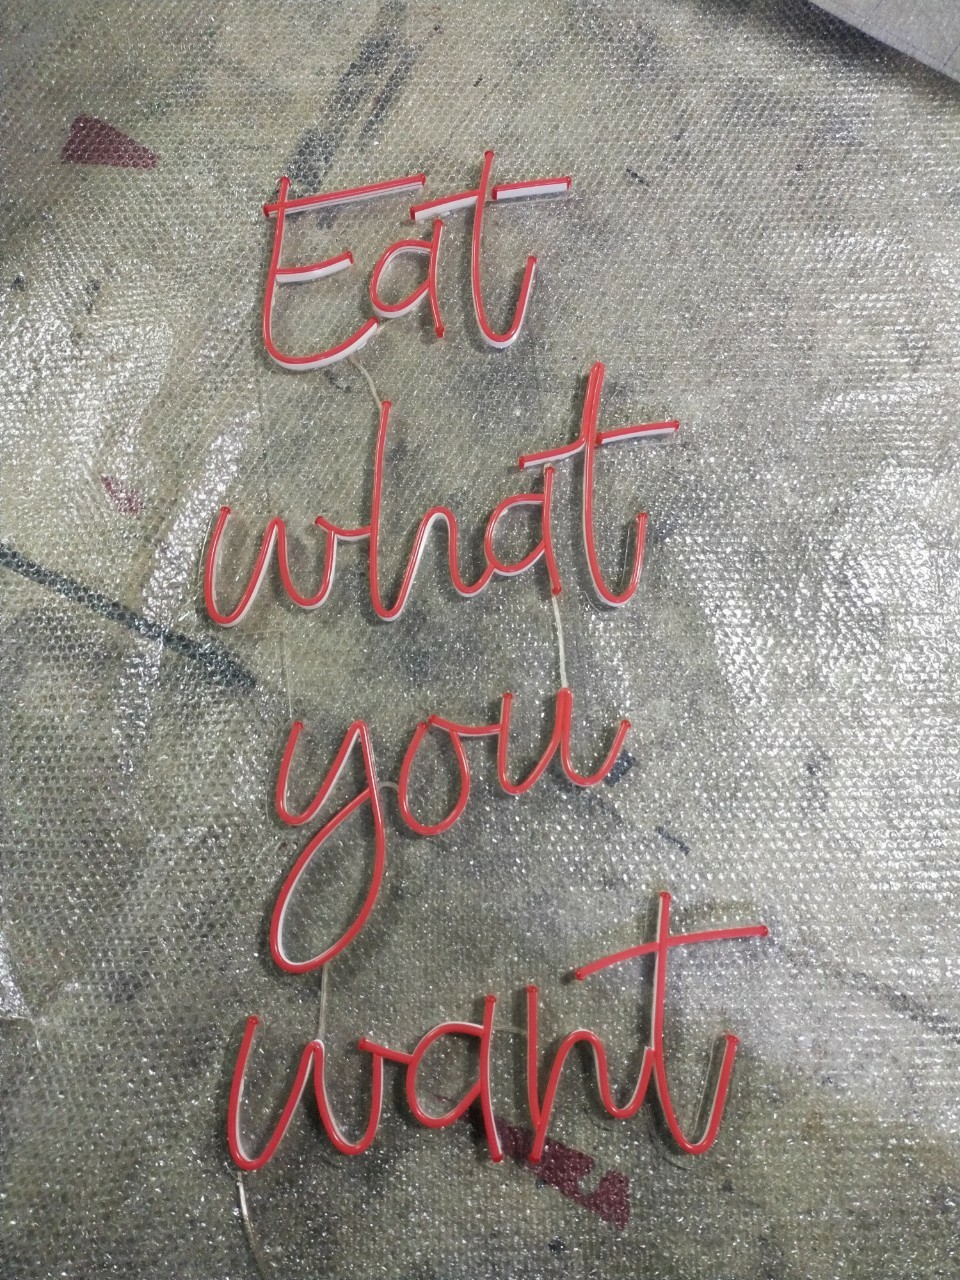 Eat
what
you
want